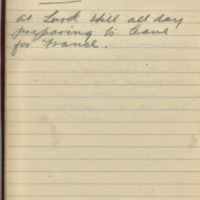 At Lark Hill all day
preparing to leave
for France.